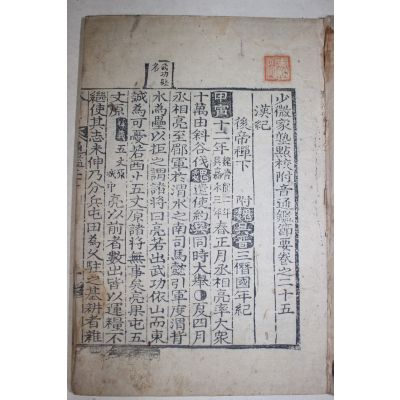 少微家塾點校附音通鑑節要卷之二十五
漢紀
後帝禪下 附魏吳晉三僭國年紀
甲寅十二年春正月丞相亮率大衆
十萬由斜谷伐魏遣使約吳同時大擧○夏四月
丞相亮至郡軍於渭水之南司馬懿引軍度渭背
水爲壘以拒之謂諸將曰亮若出武功依山而東
誠爲可憂若西上五丈原諸將無事矣亮果屯五
丈原 亮以前者數出皆以運糧不
繼使其志未伸乃分兵屯田爲久駐之基耕者雜